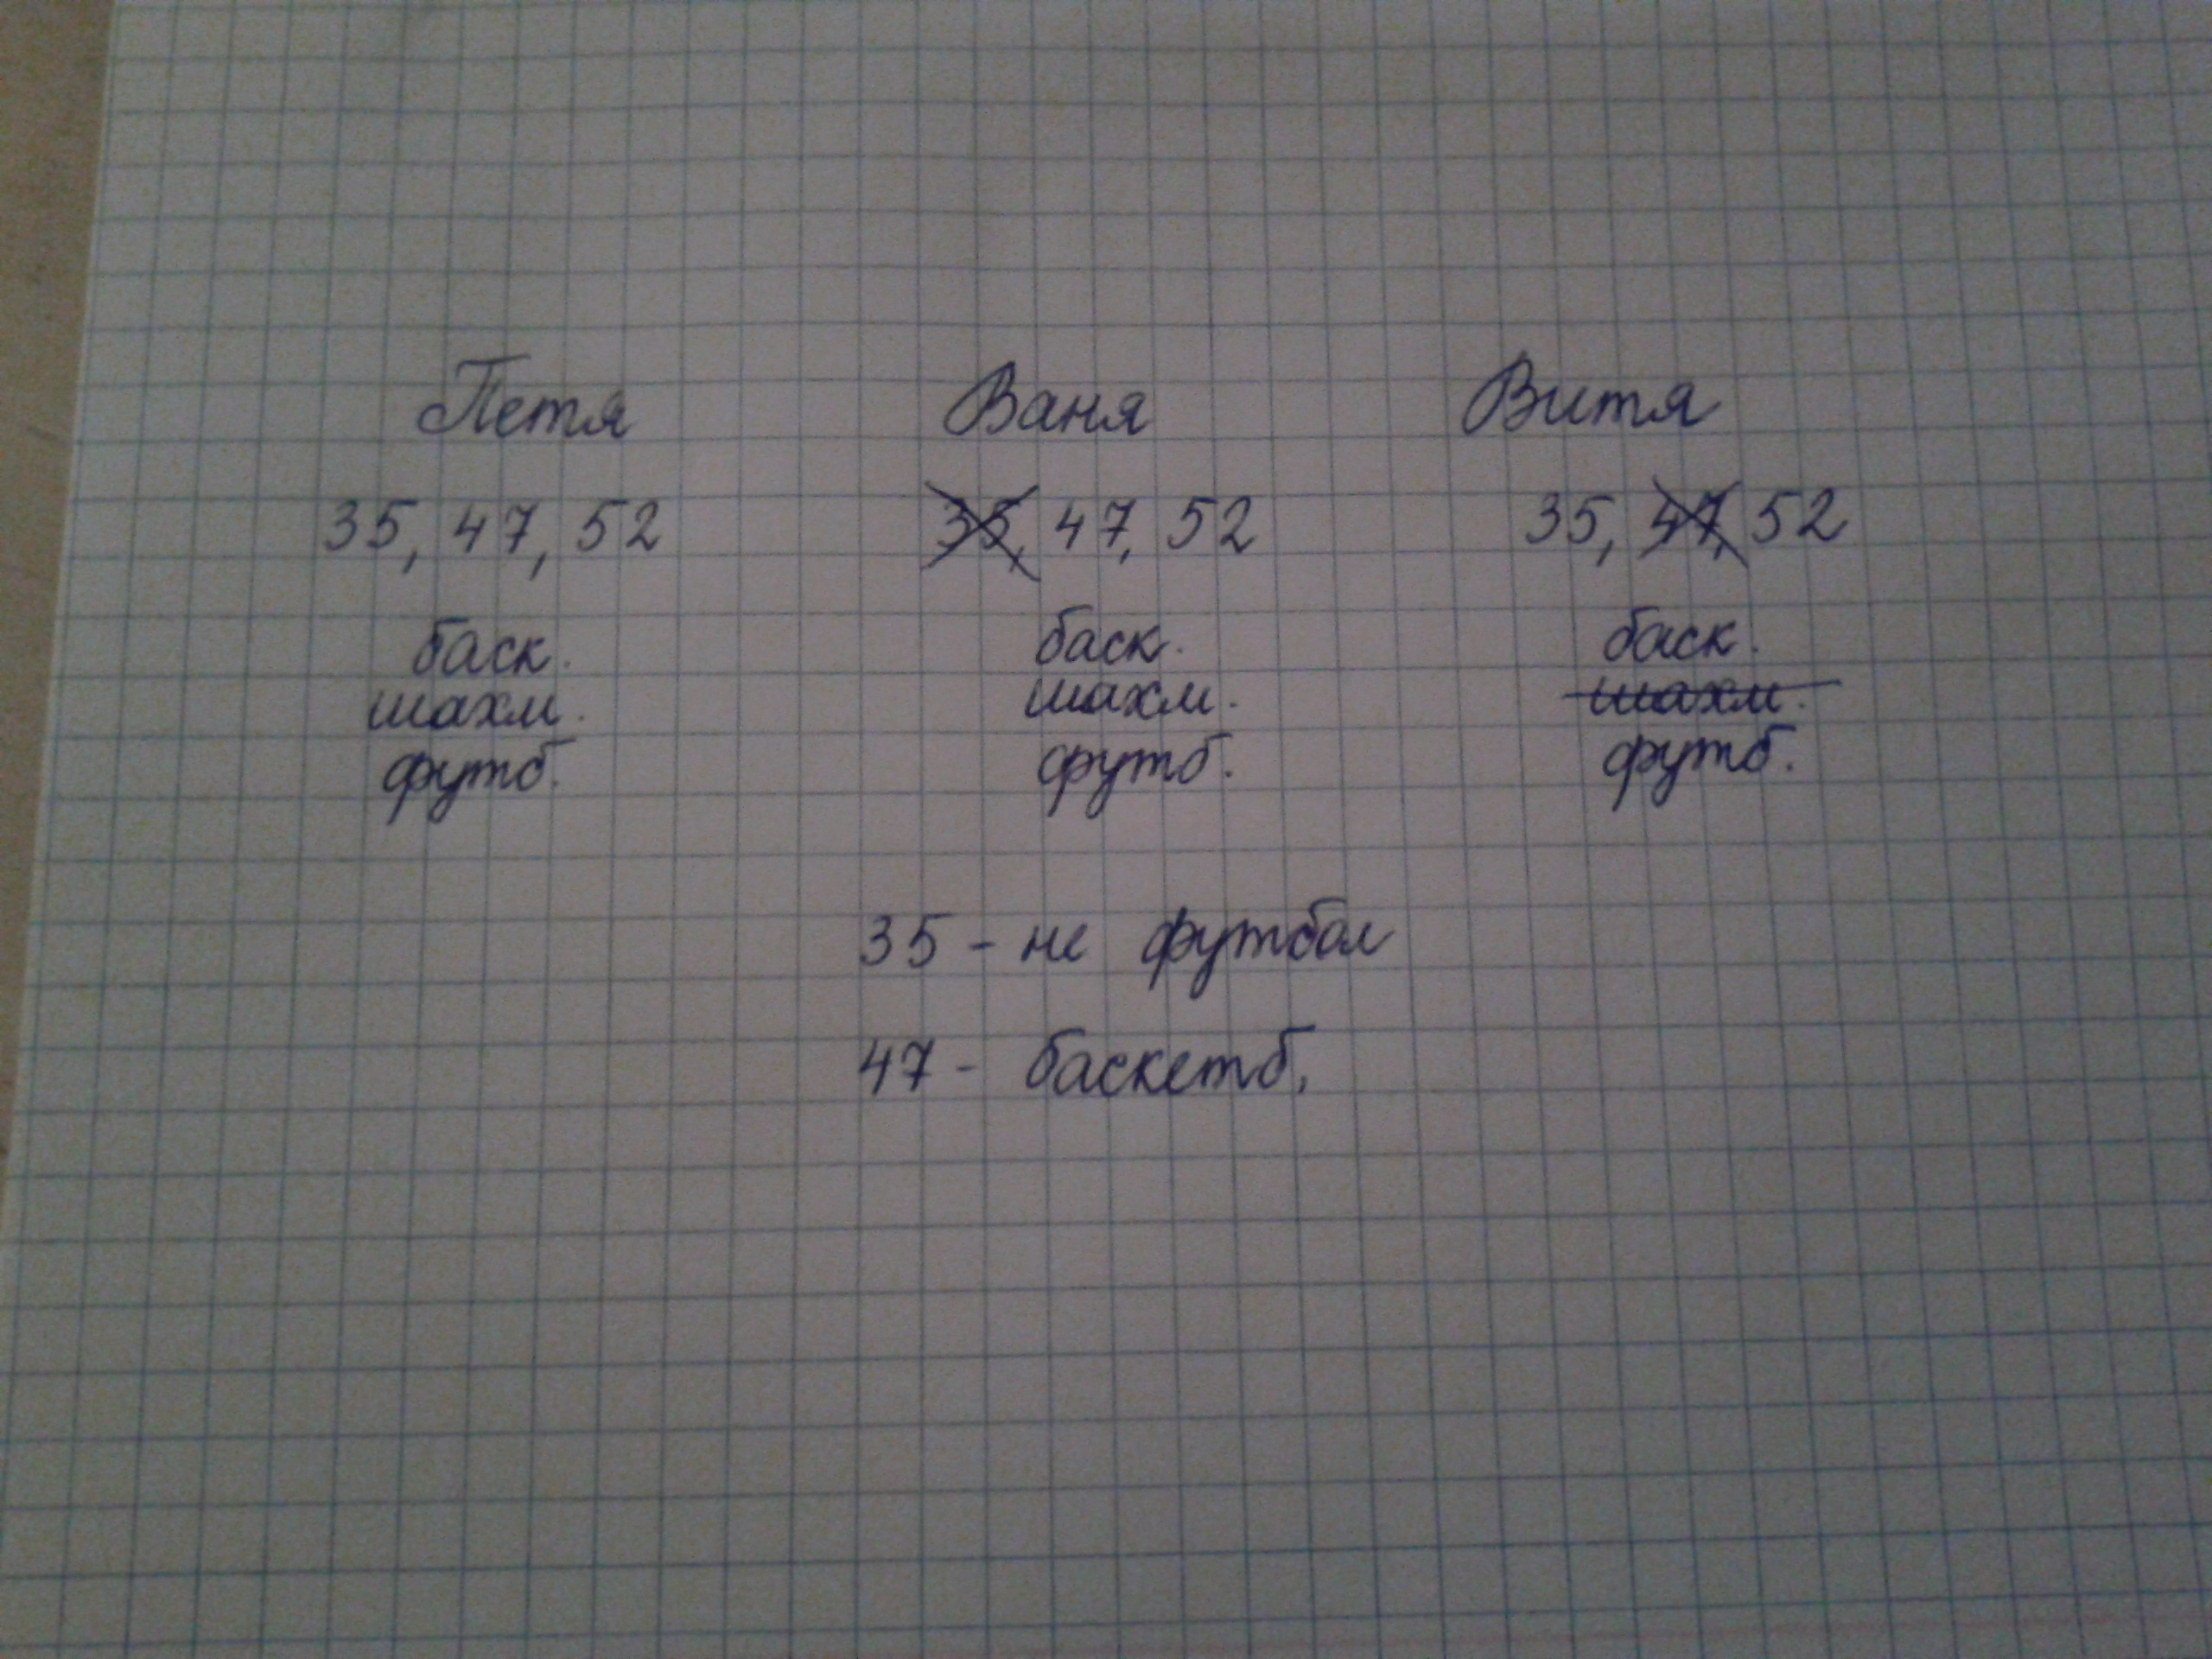 Петя Ваня Витя
35, 47, 52 35, 47, 52 35, 47, 52
баск. баск. баск.
шахм. шахм. шахм.
футб. футб. футб.
35 - не футбол
47 - баскетб.